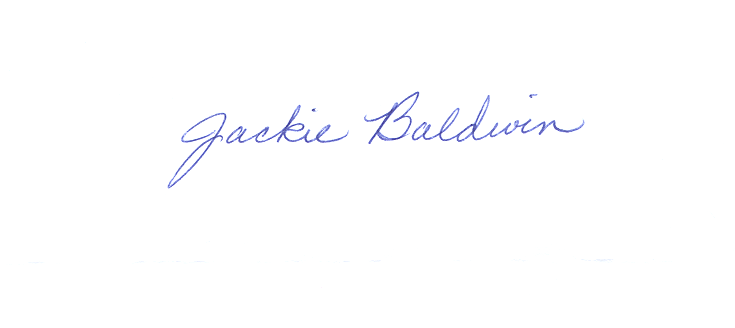 Jackie Baldwin